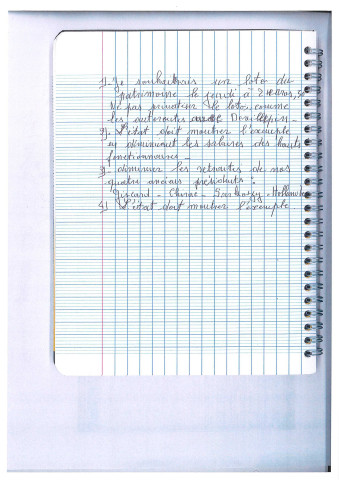 1) Je souhaiterais un loto du
patrimoine le jeudi à 2 euros, 50
Ne pas privatiser le loto comme
les autoroutes avec Dominique
2) L'état doit montrer l'exemple
en diminuant les salaires des hauts
fonctionnaires -
3) diminuer les retraites de nos
quatre anciens présidents :
Giscard - Chirac - Sarkozy - Hollande
4) L'état doit montrer l'exemple